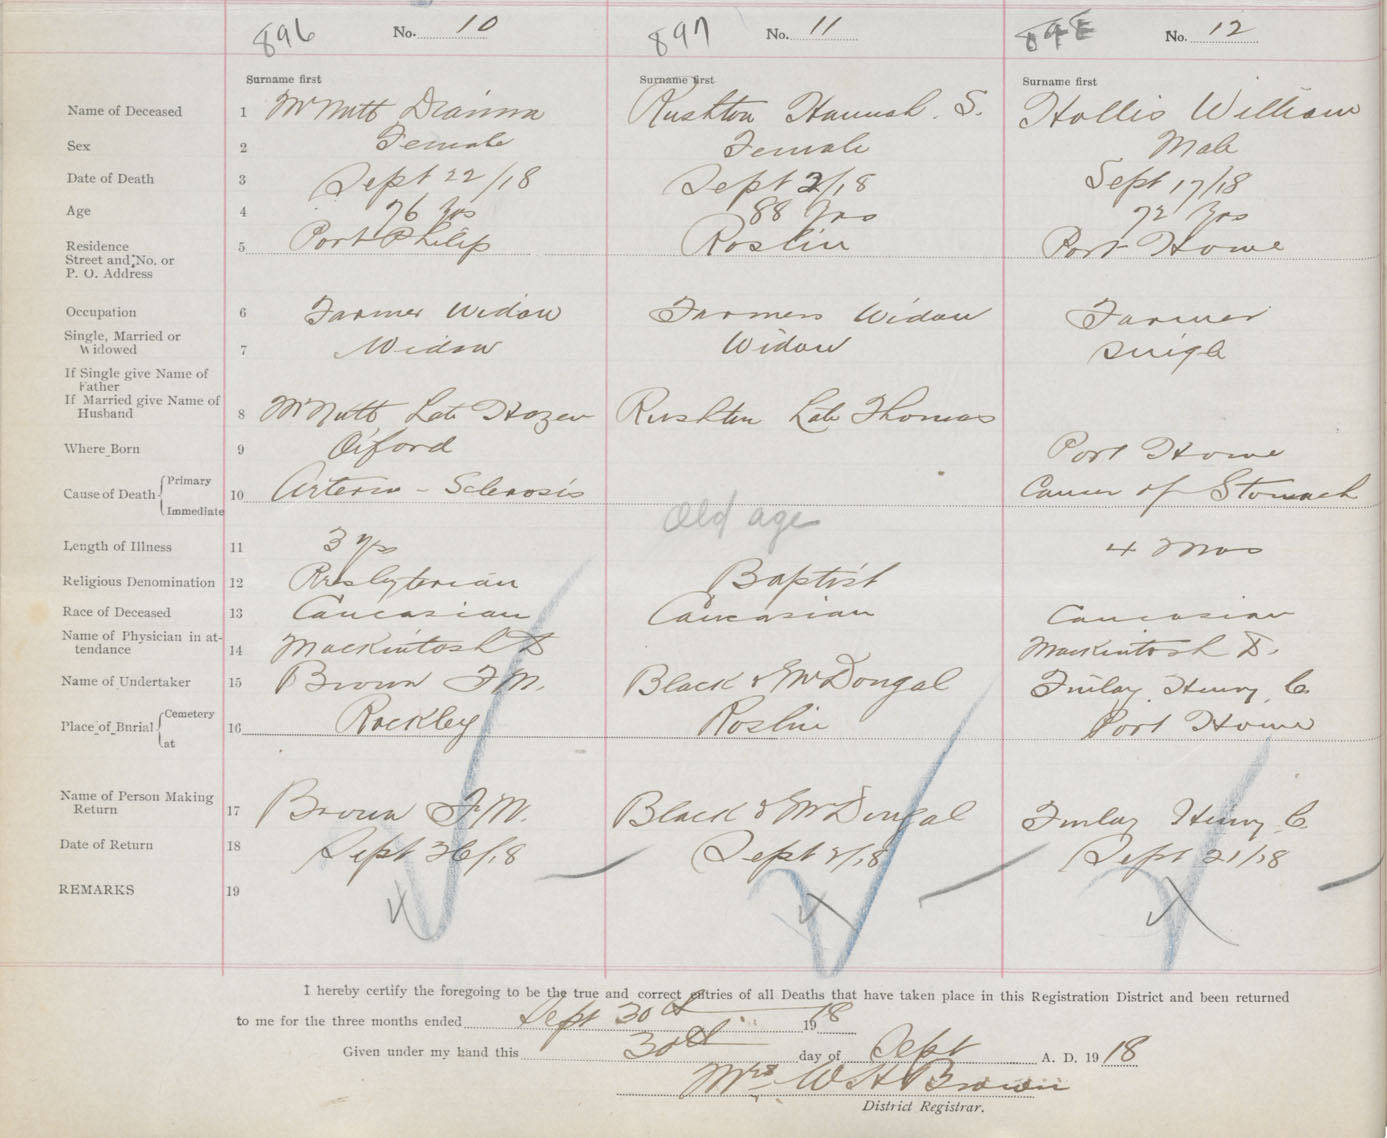 896 No. 10 897 No. 11 898 No. 12
Surname first Surname first Surname first
Name of Deceased 1 McNutt Dianna Rushton Hannah. S. Hollis William
Sex 2 Female Female Male
Date of Death 3 Sept 22/18 Sept 2/18 Sept 17/18
Age 4 76 yrs 88 yrs 72 yrs
Residence 5 Port Philip Roslin Port Howe
Street and No. or
P. O. Address
Occupation 6 Farmer Widow Farmers Widow Farmer
Single, Married or
Widowed 7 Widow Widow Single
If Single give Name of
Father
If Married give Name of
Husband 8 McNutt Late Hazen Rushton Late Thomas
Where Born 9 Oxford Port Howe
Cause of Death { Primary 10 Arterio - Sclerosis Cancer of Stomach
Immediate Old age
Length of Illness 11 3 yrs 4 mos
Religious Denomination 12 Presbyterian Baptist
Race of Deceased 13 Caucasian Caucasian Caucasian
Name of Physician in at-
tendance 14 Mackintosh D Mackintosh D.
Name of Undertaker 15 Brown F.M. Black & McDougal Finlay Henry C.
Place of Burial { Cemetery 16 Rockley Roslin Port Howe
at
Name of Person Making
Return 17 Brown F.M. Black & McDougal Finlay Henry C.
Date of Return 18 Sept 26/18 Sept 2/18 Sept 21/18
REMARKS 19
I hereby certify the foregoing to be the true and correct entries of all Deaths that have taken place in this Registration District and been returned
to me for the three months ended Sept 30th 1918
Given under my hand this 30th day of Sept A. D. 1918
Mrs W H Brown
District Registrar.